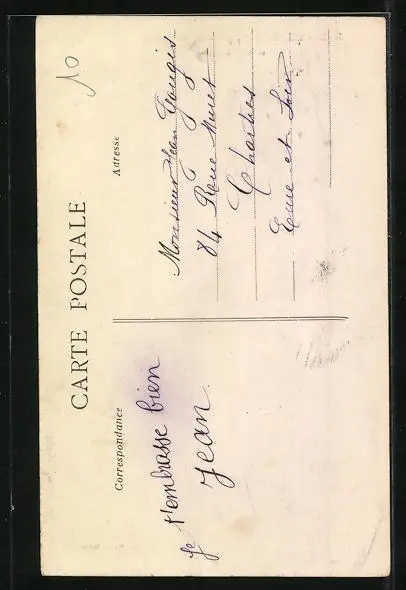 10
CARTE POSTALE
Correspondance
Adresse
Je t'embrasse bien
Jean.
Monsieur Jean Gougis
84 Rue Muret
Chartres
Eure et Loir